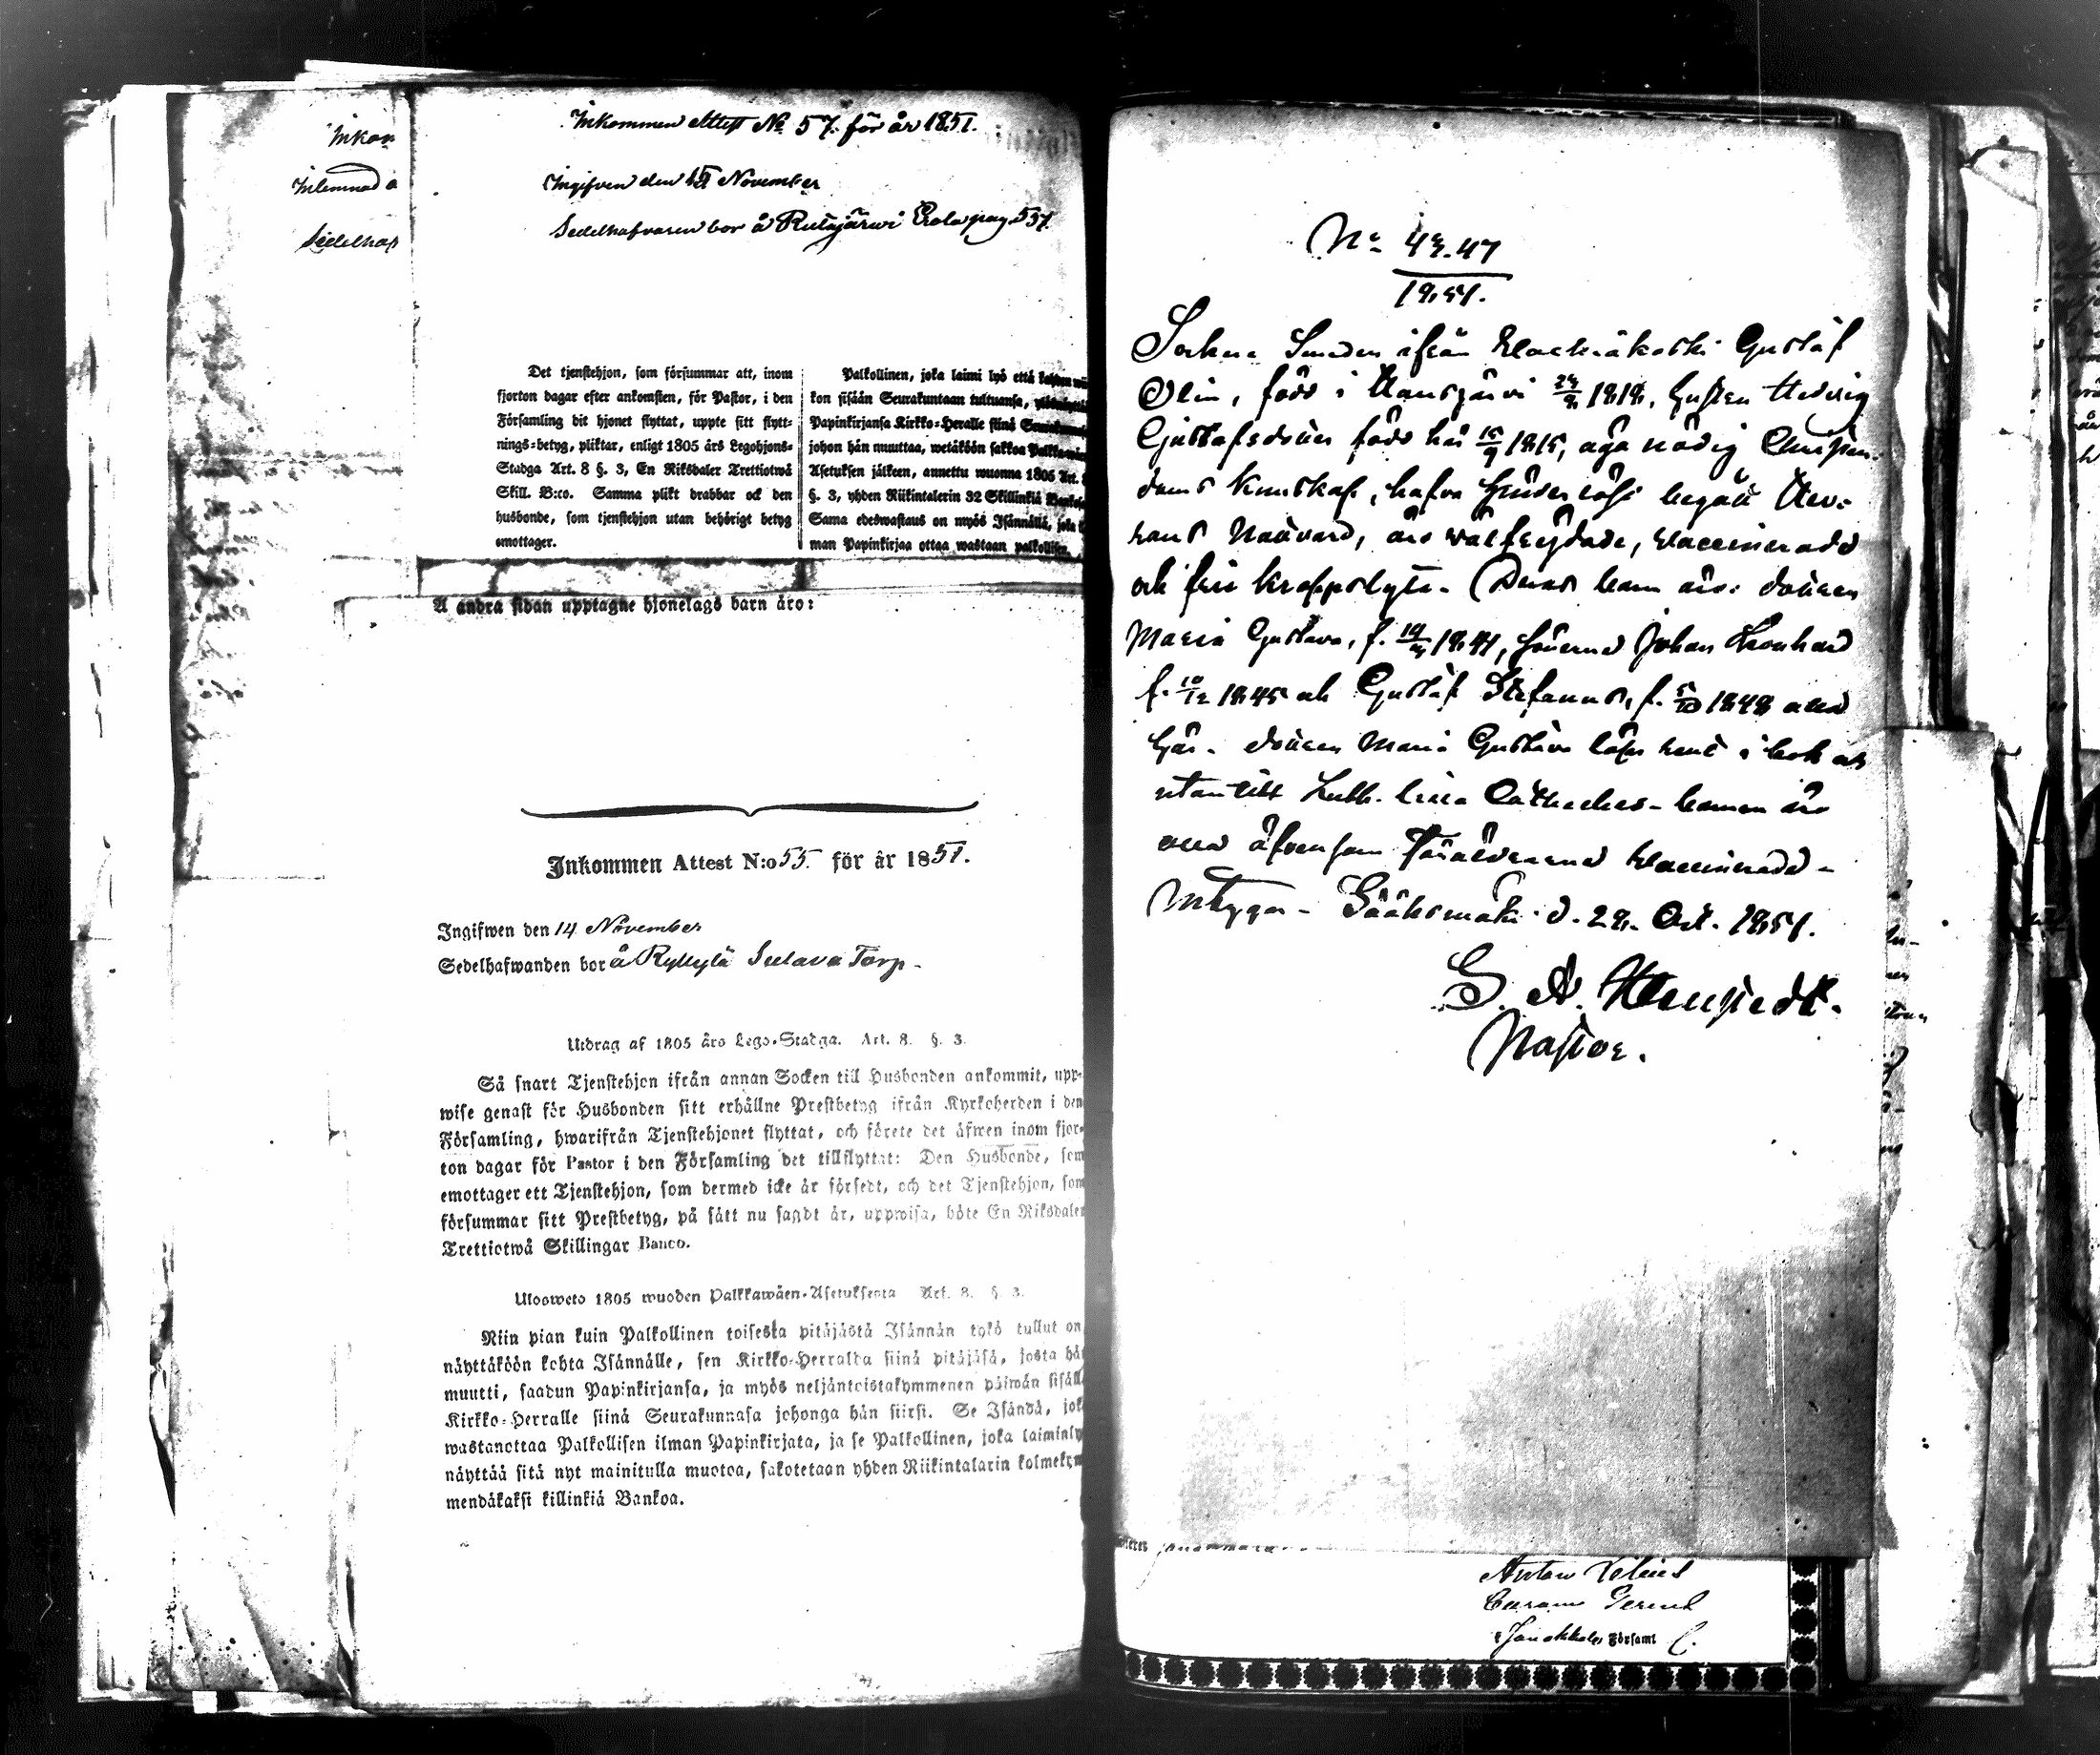 Inkom
Inlemnad a
Sedelhaf
Inkommen Attest No 57. för år 1851.
Ingifven den 15 November
Sedelhafvaren bor å Rutajärwi Erola pag. 557.
Det tjenstehjon, som försummar att, inom
fjorton dagar efter ankomsten, för Pastor, i den
Församling dit hjonet flyttat, uppte sitt flytt-
nings-betyg, pliktar, enligt 1805 års Legohjons-
Stadga Art. 8 §. 3, En Riksdaler Trettiotwå
Skill. B:co. Samma plikt drabbar ock den
husbonde, som tjenstehjon utan behörigt betyg
emottager.
Palkollinen, joka laimi lyö että
kon sisään Seurakuntaan tultuansa,
Papinkirjansa Kirkko-Heralle siinä
johon hän muuttaa, wetäköön sakkoa
Asetuksen jälkeen, annettu wuonna 1805 Art.
§. 3, yhden Riikintalerin 32 Skillinkiä
Sama edeswastaus on myös Isännällä, joka
man Papinkirjaa ottaa wastaan palkollisen.
Å andra sidan upptagne hjonelags barn äro:
Inkommen Attest N:o 55. för år 1851.
Ingifwen den 14 November
Sedelhafwanden bor å Rykylä Torp.
Utdrag af 1805 års Lego-Stadga. Art. 8. §. 3.
Så snart Tjenstehjon ifrån annan Socken till Husbonden ankommit, upp-
wise genast för Husbonden sitt erhållne Prestbetyg ifrån Kyrkoherden i den
Församling, hwarifrån Tjenstehjonet flyttat, och förete det äfwen inom fjor-
ton dagar för Pastor i den Församling det tillflyttat: Den Husbonde, som
emottager ett Tjenstehjon, som dermed icke är försedt, och det Tjenstehjon, som
försummar sitt Prestbetyg, på sätt nu sagdt är, uppwisa, böte En Riksdaler
Trettiotwå Skillingar Banco.
Ulosweto 1805 wuoden Palkkawäen-Asetuksesta Art. 8. §. 3.
Niin pian kuin Palkollinen toisesta pitäjästä Isännän tykö tullut on,
näyttäköön kohta Isännälle, sen Kirkko-Herralda siinä pitäjäsä, josta hän
muutti, saadun Papinkirjansa, ja myös neljäntoistakymmenen päiwän sisällä
Kirkko-Herralle siinä Seurakunnasa johonga hän siirsi. Se Isändä, joka
wastanottaa Palkollisen ilman Papinkirjata, ja se Palkollinen, joka laiminly
näyttää sitä nyt mainitulla muotoa, sakotetaan yhden Riikintalarin kolmekym
mendäkaksi killinkiä Bankoa.
No 48.47
1851.
Sockne Smeden ifrån Gustaf
Olin, född i 1818, hustru Hedvig
Gustafsdotter född här 15/9 1815, äga nödig Christen-
doms kunskap, hafva hinderlöst begått Her-
rans Nattvard, äro välfrejdade, vaccinerade
och fria kroppslyte. Deras barn äro: dottren
Maria Gustava, f. 1841, sönerna Johan Leonhard
f. 10/12 1845 och Gustaf Stefanus, f. 5/10 1848 alla
här. dottren Maria Gustava läser rent i bok och
utantill Luth. lilla Catheches. barnen äro
alla äfvensom föräldrarne vaccinerade.
intygar. Sääksmäki d. 28. Oct. 1851.
Pastor.
Anton
Janakkala Församl